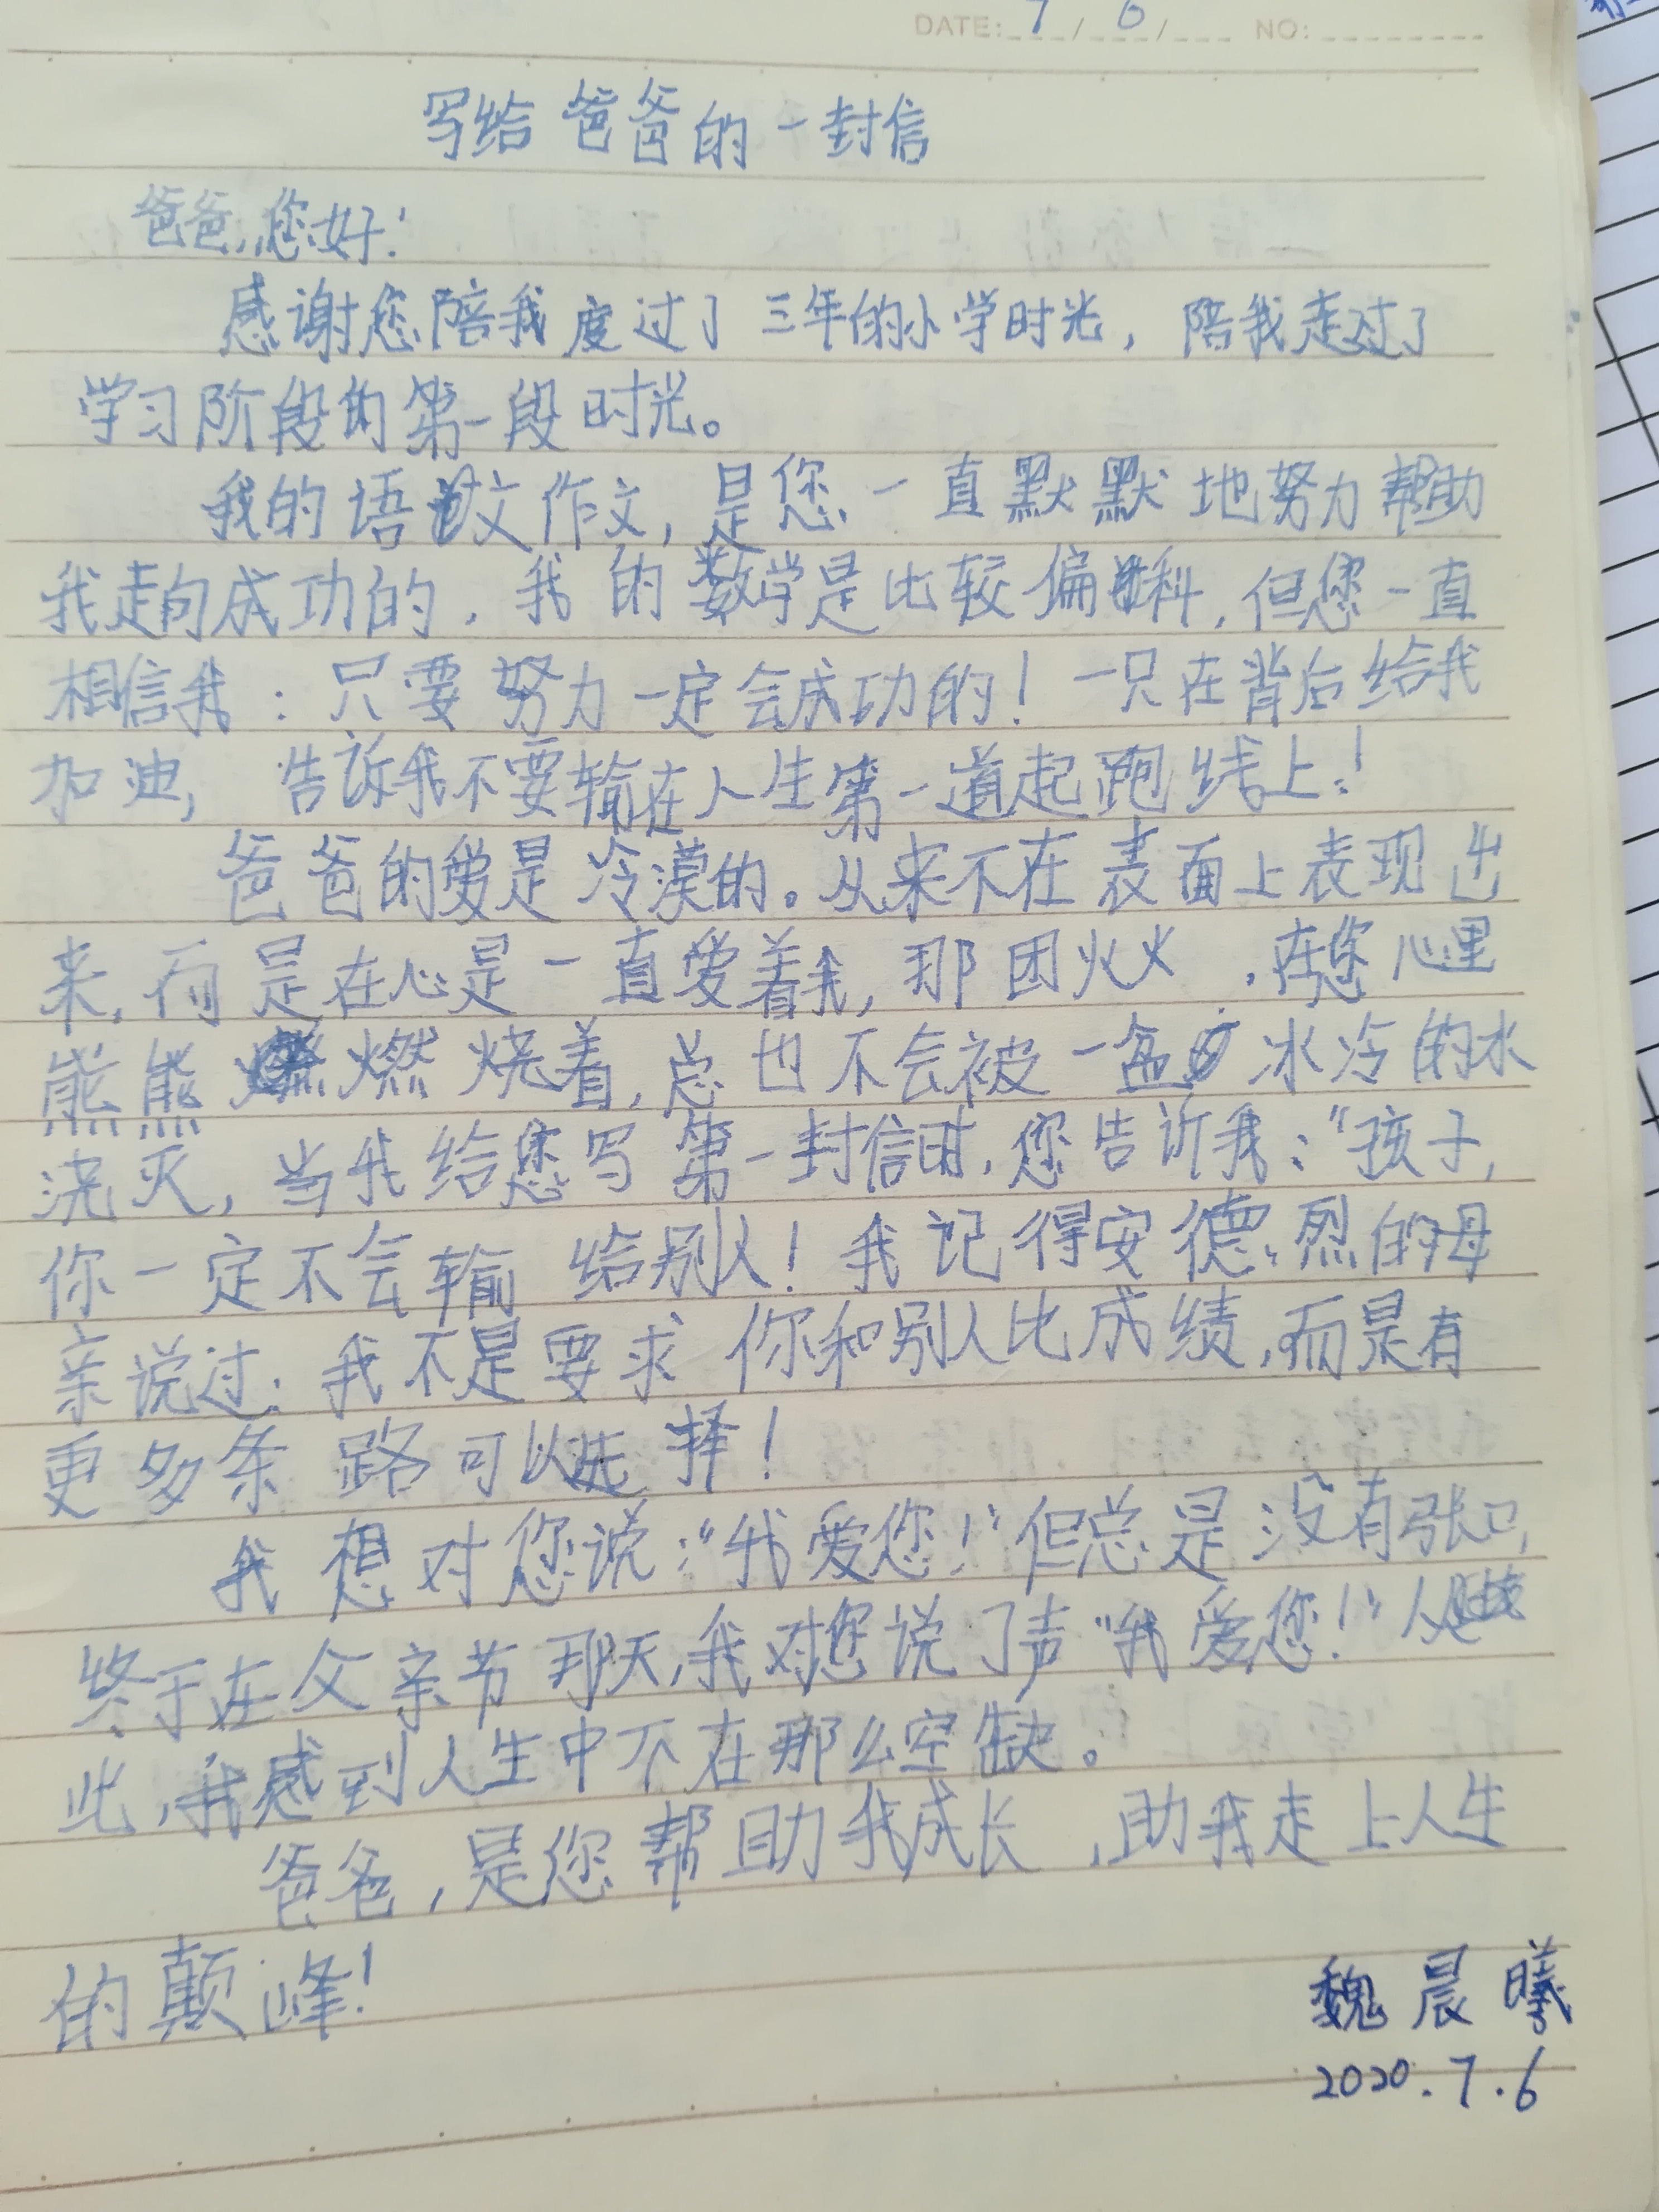 DATE: 7 / 6 / NO:
写给爸爸的一封信
爸爸,您好!
感谢您陪我度过了三年的小学时光,陪我走过了
学习阶段的第一段时光。
我的语文作文,是您一直默默地努力帮助
我走向成功的,我的数学是比较偏科,但您一直
相信我:只要努力一定会成功的!一只在背后给我
加油,告诉我不要输在人生第一道起跑线上!
爸爸的爱是冷漠的。从来不在表面上表现出
来,而是在心是一直爱着我,那团火火,在您心里
熊熊燃烧着,总也不会被一盆冰冷的水
浇灭,当我给您写第一封信时,您告诉我:“孩子,
你一定不会输给别人!我记得安德烈的母
亲说过:我不是要求你和别人比成绩,而是有
更多条路可以选择!
我想对您说:“我爱您!”但总是没有张口,
终于在父亲节那天,我对您说了声“我爱您!”从
此,我感到人生中不在那么空缺。
爸爸,是您帮助我成长,助我走上人生
的颠峰!
魏晨曦
2020.7.6